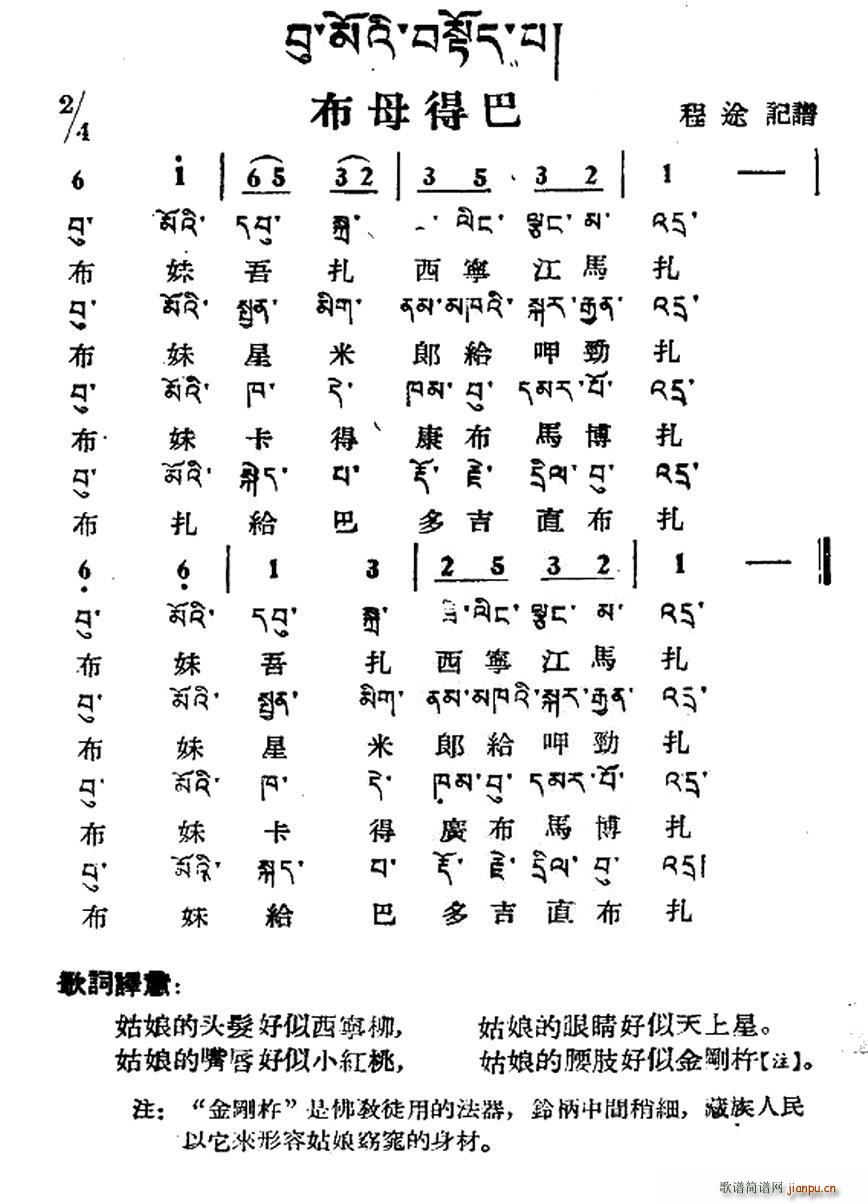 བུ་མོའི་བསྟོད་པ།
布母得巴
2/4
程途 記譜
6 i | 6 5 3 2 | 3 5 3 2 | 1 — |
བུ་ མོའི་ དབུ་ སྐྲ་ ལིང་ ལྕང་ མ་ འདྲ་
布 妹 吾 扎 西 寧 江 馬 扎
བུ་ མོའི་ སྤྱན་ མིག་ ནམ་མཁའི་ སྐར་རྒྱན་ འདྲ་
布 妹 星 米 郞 給 呷 勁 扎
བུ་ མོའི་ ཁ་ དེ་ ཁམ་བུ་ དམར་པོ་ འདྲ་
布 妹 卡 得 康 布 馬 博 扎
བུ་ མོའི་ སྐེད་ པ་ རྡོ་ རྗེ་ དྲིལ་བུ་ འདྲ་
布 扎 給 巴 多 吉 直 布 扎
6 6 | 1 3 | 2 5 3 2 | 1 — ‖
བུ་ མོའི་ དབུ་ སྐྲ་ ལིང་ ལྕང་ མ་ འདྲ་
布 妹 吾 扎 西 寧 江 馬 扎
བུ་ མོའི་ སྤྱན་ མིག་ ནམ་མཁའི་ སྐར་རྒྱན་ འདྲ་
布 妹 星 米 郞 給 呷 勁 扎
བུ་ མོའི་ ཁ་ དེ་ ཁམ་བུ་ དམར་པོ་ འདྲ་
布 妹 卡 得 廣 布 馬 博 扎
བུ་ མོའི་ སྐད་ པ་ རྡོ་ རྗེ་ དྲིལ་བུ་ འདྲ།
布 妹 給 巴 多 吉 直 布 扎
歌詞譯意：
姑娘的头髮好似西寧柳， 姑娘的眼睛好似天上星。
姑娘的嘴唇好似小紅桃， 姑娘的腰肢好似金剛杵【注】。
注：“金剛杵”是佛敎徒用的法器，鈴柄中間稍細，藏族人民
以它来形容姑娘窈窕的身材。
歌谱简谱网
jianpu.cn